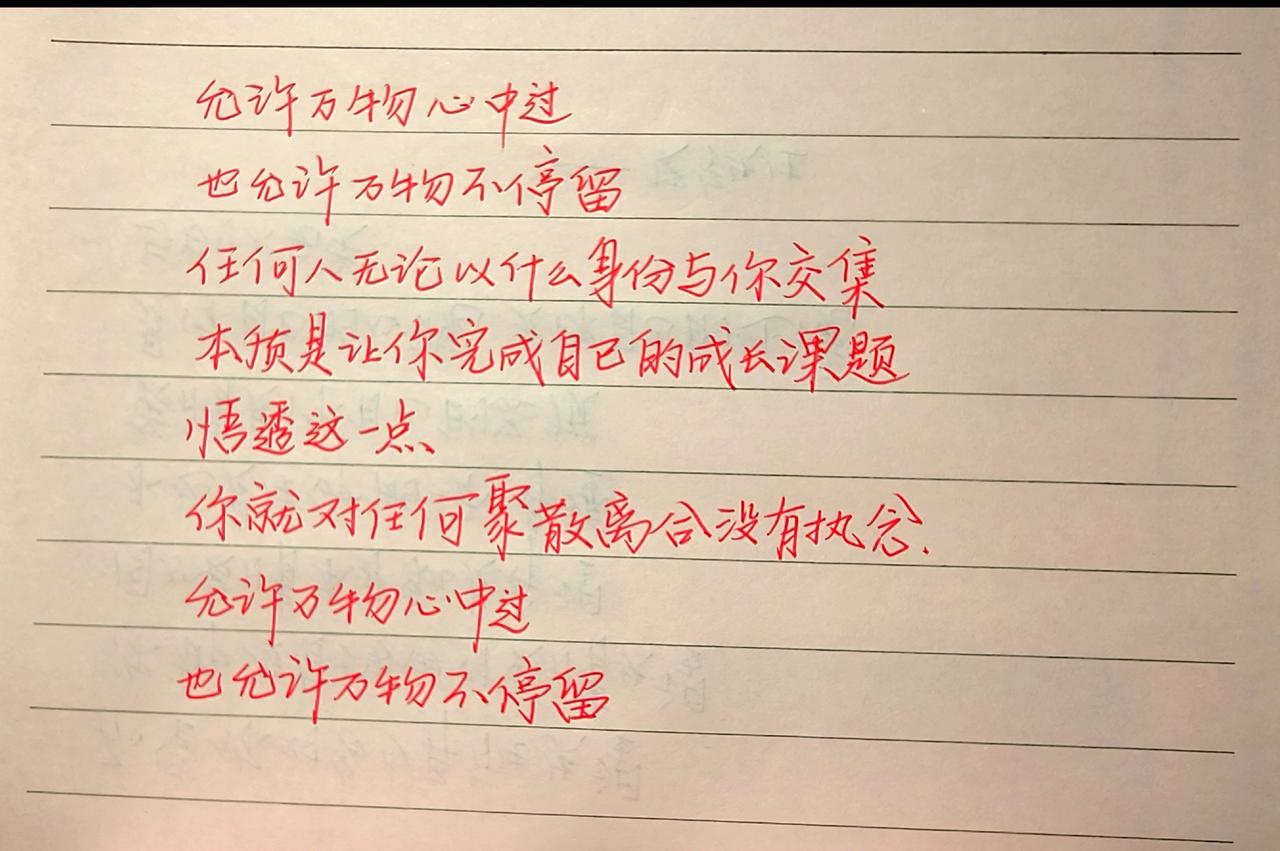 允许万物心中过
也允许万物不停留
任何人无论以什么身份与你交集
本质是让你完成自己的成长课题
悟透这一点、
你就对任何聚散离合没有执念.
允许万物心中过
也允许万物不停留